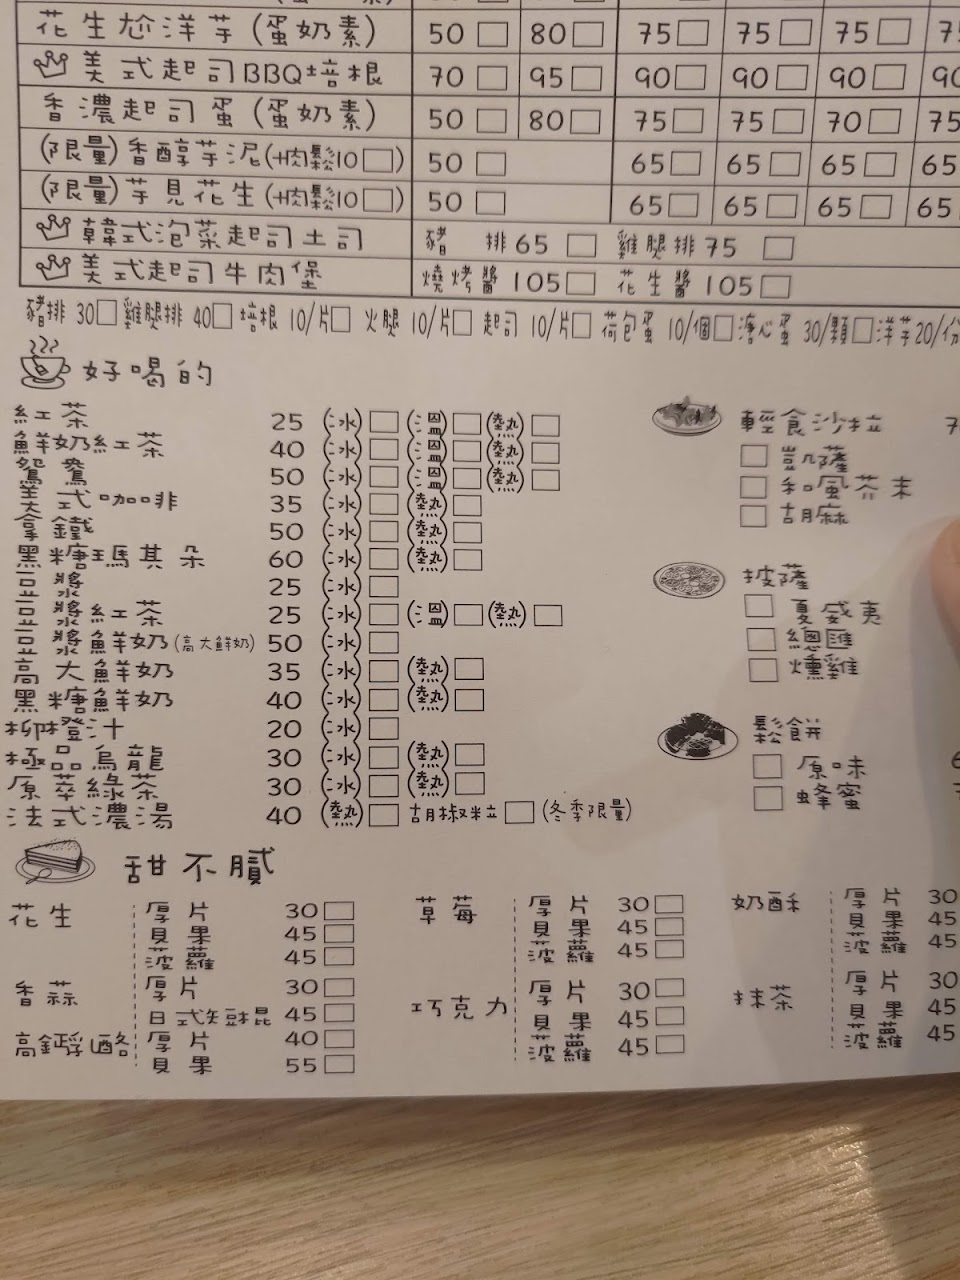 花生尬洋芋(蛋奶素) 50 □ 80 □ 75 □ 75 □ 75 □
美式起司BBQ培根 70 □ 95 □ 90 □ 90 □ 90 □ 90
香濃起司蛋(蛋奶素) 50 □ 80 □ 75 □ 75 □ 70 □ 75
(限量)香醇芋泥(+肉鬆10□) 50 □ 65 □ 65 □ 65 □ 65
(限量)芋見花生(+肉鬆10□) 50 □ 65 □ 65 □ 65 □ 65
韓式泡菜起司土司 豬排65 □ 雞腿排75 □
美式起司牛肉堡 燒烤醬105 □ 花生醬105 □
豬排 30□雞腿排 40□培根 10/片□ 火腿 10/片□ 起司 10/片□ 荷包蛋 10/個□溏心蛋 30/顆□洋芋20/份
好喝的
紅茶 25 (冰)□(溫)□(熱)□
鮮奶紅茶 40 (冰)□(溫)□(熱)□
鴛鴦 50 (冰)□(溫)□(熱)□
美式咖啡 35 (冰)□(熱)□
拿鐵 50 (冰)□(熱)□
黑糖瑪其朵 60 (冰)□(熱)□
豆漿 25 (冰)□
豆漿紅茶 25 (冰)□(溫)□(熱)□
豆漿鮮奶(高大鮮奶) 50 (冰)□
高大鮮奶 35 (冰)□(熱)□
黑糖鮮奶 40 (冰)□(熱)□
柳橙汁 20 (冰)□
極品烏龍 30 (冰)□(熱)□
原萃綠茶 30 (冰)□(熱)□
法式濃湯 40 (熱)□ 胡椒粒□(冬季限量)
輕食沙拉
□ 凱薩
□ 和風芥末
□ 胡麻
披薩
□ 夏威夷
□ 總匯
□ 燻雞
鬆餅
□ 原味
□ 蜂蜜
甜不膩
花生 厚片 30□
貝果 45□
菠蘿 45□
香蒜 厚片 30□
日式短棍 45□
高鈣乳酪 厚片 40□
貝果 55□
草莓 厚片 30□
貝果 45□
菠蘿 45□
巧克力 厚片 30□
貝果 45□
菠蘿 45□
奶酥 厚片 30
貝果 45
菠蘿 45
抹茶 厚片 30
貝果 45
菠蘿 45